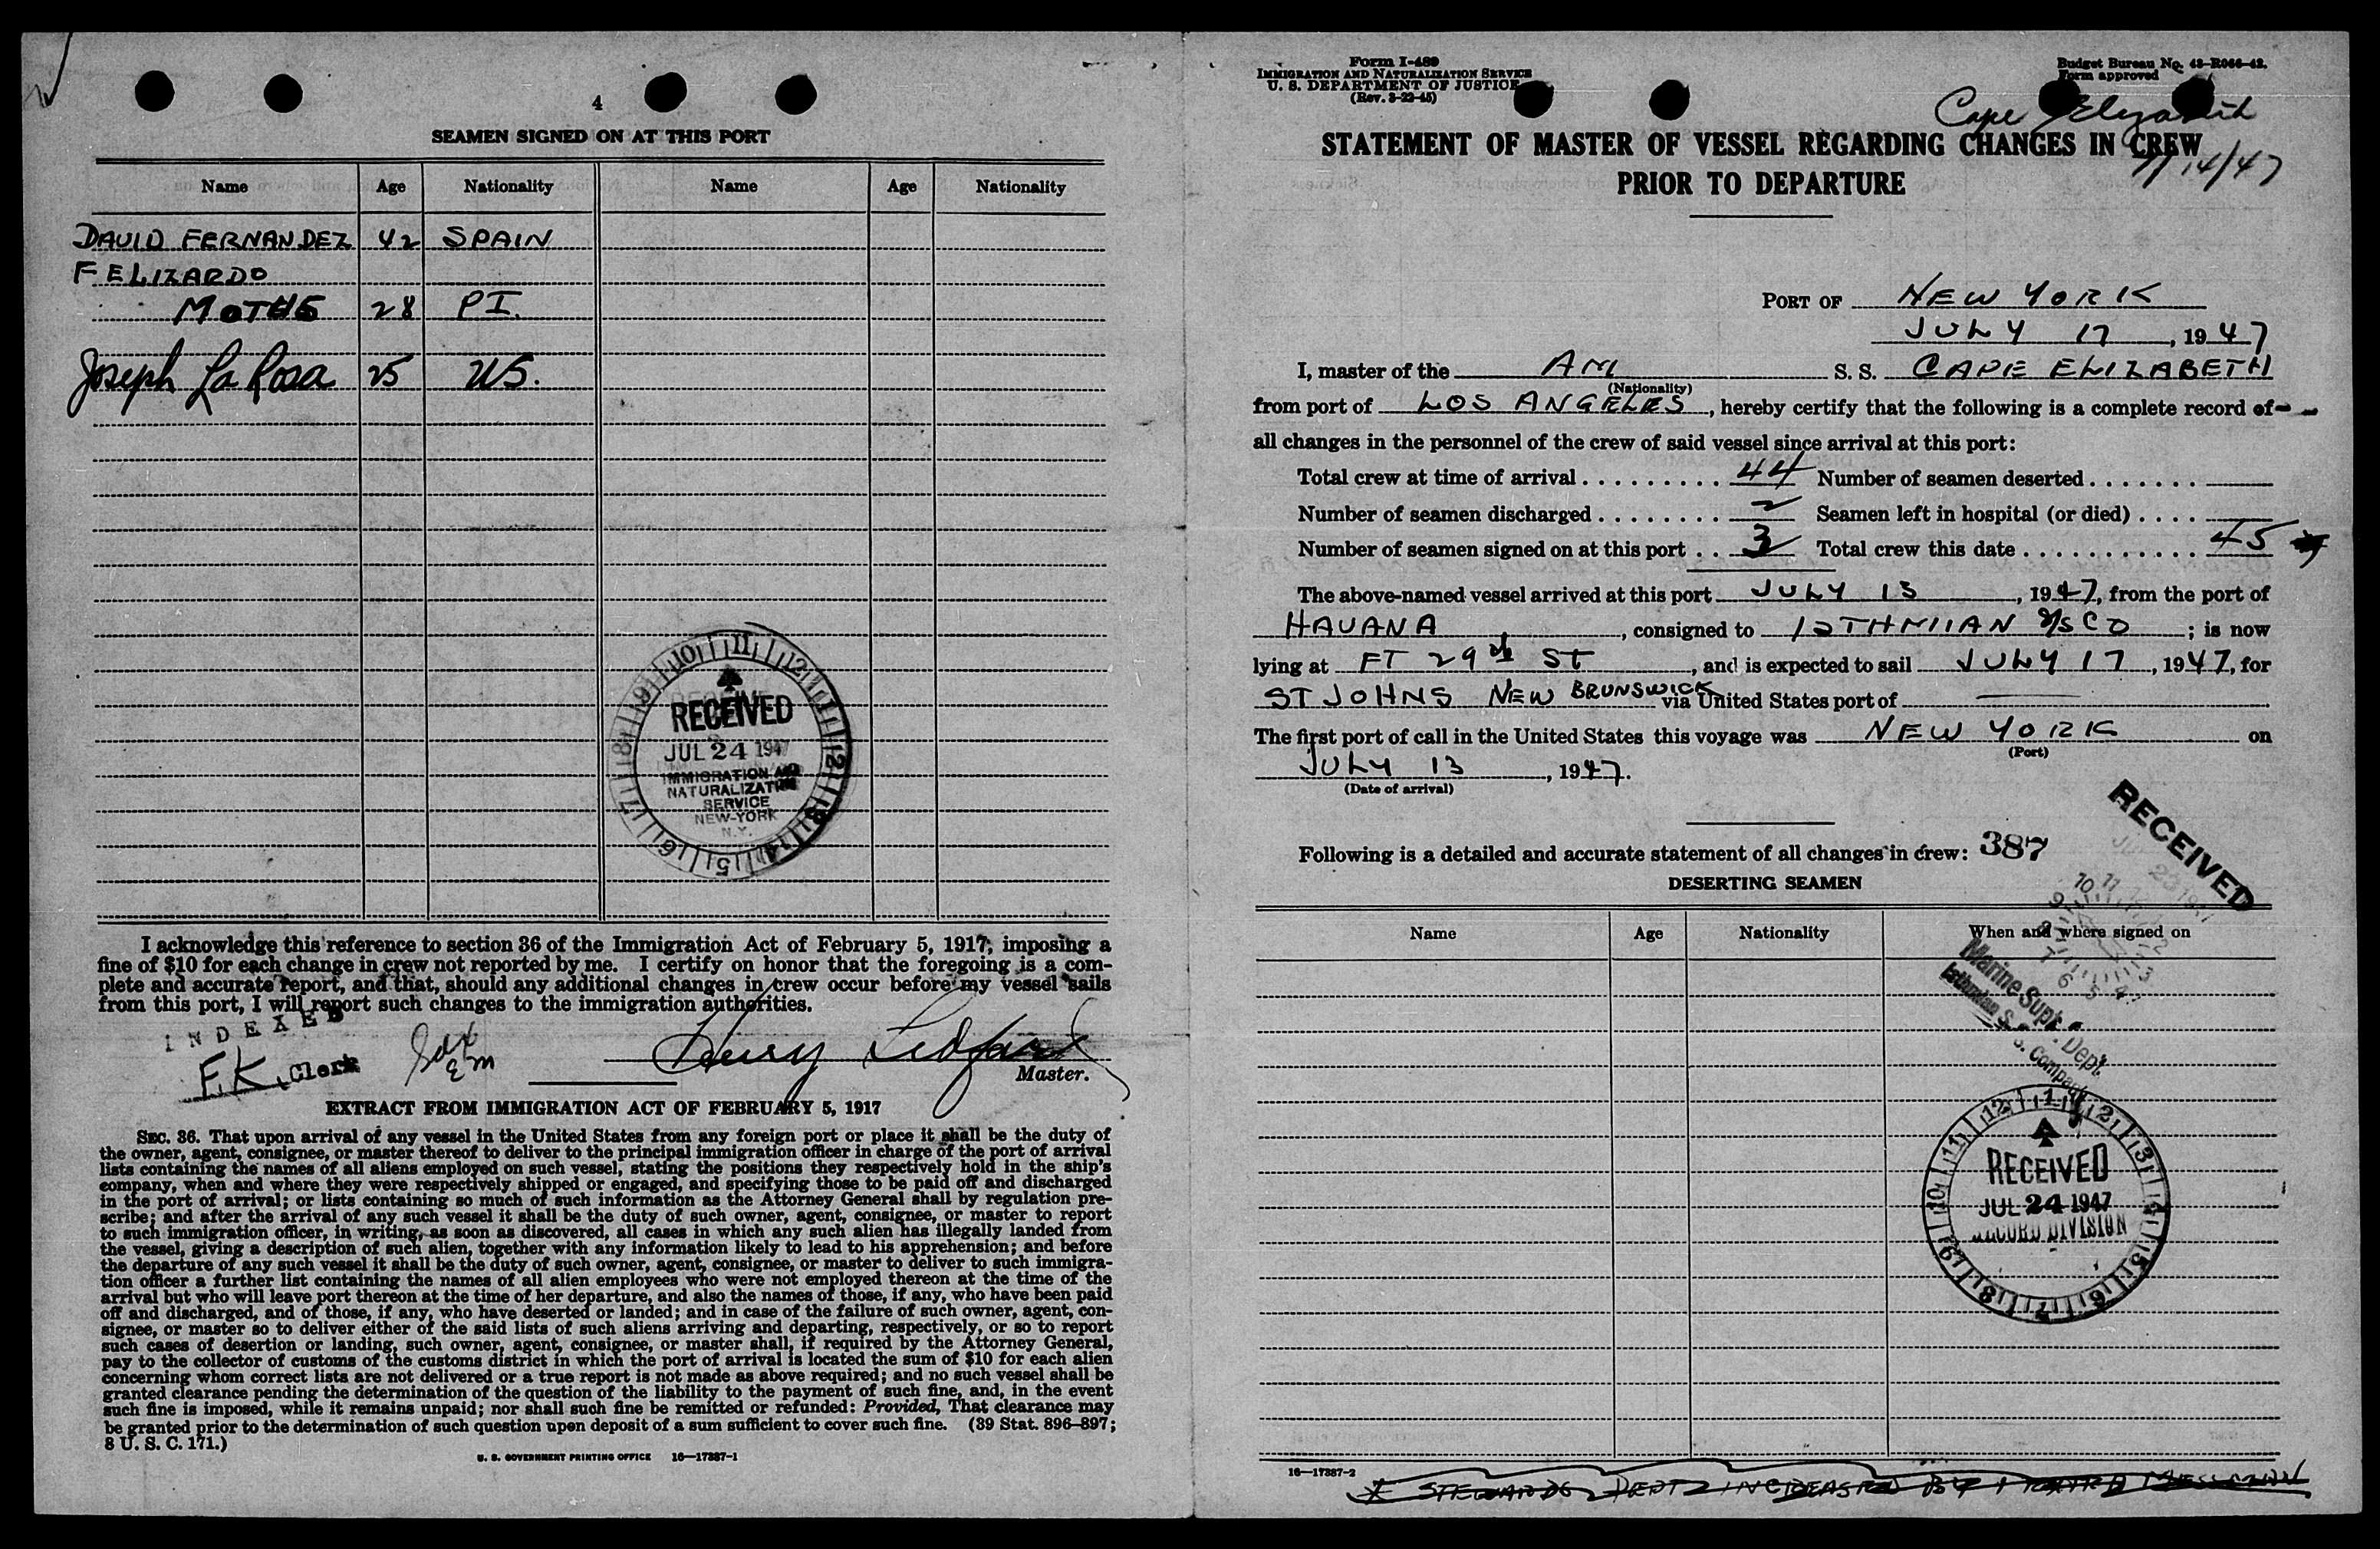 4
SEAMEN SIGNED ON AT THIS PORT
Name Age Nationality Name Age Nationality
DAVID FERNANDEZ 42 SPAIN
FELIZARDO
28 PI.
Joseph La Rosa 25 US.
RECEIVED
JUL 24 1947
IMMIGRATION AND
NATURALIZATION
SERVICE
NEW-YORK
N.Y.
I acknowledge this reference to section 36 of the Immigration Act of February 5, 1917, imposing a
fine of $10 for each change in crew not reported by me. I certify on honor that the foregoing is a com-
plete and accurate report, and that, should any additional changes in crew occur before my vessel sails
from this port, I will report such changes to the immigration authorities.
INDEXED
F.K. Clerk
Henry
Master.
EXTRACT FROM IMMIGRATION ACT OF FEBRUARY 5, 1917
SEC. 36. That upon arrival of any vessel in the United States from any foreign port or place it shall be the duty of
the owner, agent, consignee, or master thereof to deliver to the principal immigration officer in charge of the port of arrival
lists containing the names of all aliens employed on such vessel, stating the positions they respectively hold in the ship's
company, when and where they were respectively shipped or engaged, and specifying those to be paid off and discharged
in the port of arrival; or lists containing so much of such information as the Attorney General shall by regulation pre-
scribe; and after the arrival of any such vessel it shall be the duty of such owner, agent, consignee, or master to report
to such immigration officer, in writing, as soon as discovered, all cases in which any such alien has illegally landed from
the vessel, giving a description of such alien, together with any information likely to lead to his apprehension; and before
the departure of any such vessel it shall be the duty of such owner, agent, consignee, or master to deliver to such immigra-
tion officer a further list containing the names of all alien employees who were not employed thereon at the time of the
arrival but who will leave port thereon at the time of her departure, and also the names of those, if any, who have been paid
off and discharged, and of those, if any, who have deserted or landed; and in case of the failure of such owner, agent, con-
signee, or master so to deliver either of the said lists of such aliens arriving and departing, respectively, or so to report
such cases of desertion or landing, such owner, agent, consignee, or master shall, if required by the Attorney General,
pay to the collector of customs of the customs district in which the port of arrival is located the sum of $10 for each alien
concerning whom correct lists are not delivered or a true report is not made as above required; and no such vessel shall be
granted clearance pending the determination of the question of the liability to the payment of such fine, and, in the event
such fine is imposed, while it remains unpaid; nor shall such fine be remitted or refunded: Provided, That clearance may
be granted prior to the determination of such question upon deposit of a sum sufficient to cover such fine. (39 Stat. 896-897;
8 U. S. C. 171.)
U. S. GOVERNMENT PRINTING OFFICE 16—17387-1
Form I-489
IMMIGRATION AND NATURALIZATION SERVICE
U. S. DEPARTMENT OF JUSTICE
(Rev. 3-22-45)
Budget Bureau No. 43-R066-42.
Form approved
Cape Elizabeth
7/14/47
STATEMENT OF MASTER OF VESSEL REGARDING CHANGES IN CREW
PRIOR TO DEPARTURE
PORT OF NEW YORK
JULY 17, 1947
I, master of the AM S. S. CAPE ELIZABETH
(Nationality)
from port of LOS ANGELES, hereby certify that the following is a complete record of
all changes in the personnel of the crew of said vessel since arrival at this port:
Total crew at time of arrival 44 Number of seamen deserted
Number of seamen discharged 2 Seamen left in hospital (or died)
Number of seamen signed on at this port 3 Total crew this date 45
The above-named vessel arrived at this port JULY 13, 1947, from the port of
HAVANA, consigned to ISTHMIAN S/S CO; is now
lying at FT 29th ST, and is expected to sail JULY 17, 1947, for
ST JOHNS NEW BRUNSWICK via United States port of
The first port of call in the United States this voyage was NEW YORK on
(Port)
JULY 13, 1947.
(Date of arrival)
RECEIVED
Following is a detailed and accurate statement of all changes in crew: 387
DESERTING SEAMEN
Name Age Nationality When and where signed on
Marine Supt. Dept.
Isthmian S. S. Company
RECEIVED
JUL 24 1947
RECORD DIVISION
16—17387-2
STEWARDS DEPT INCREASED BY 1 EXTRA MESSMAN